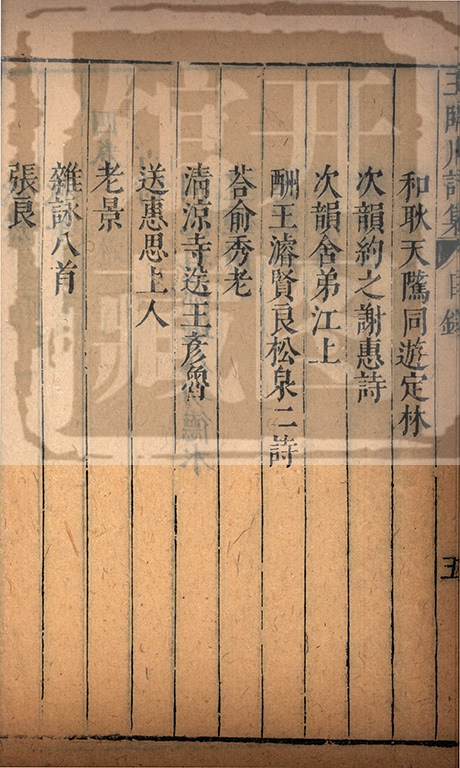 王臨川詩集 目錄 五
和耿天騭同遊定林
次韻約之謝惠詩
次韻舍弟江上
酬王濬賢良松泉二詩
荅俞秀老
清涼寺送王彥魯
送惠思上人
老景
雜詠八首
張良